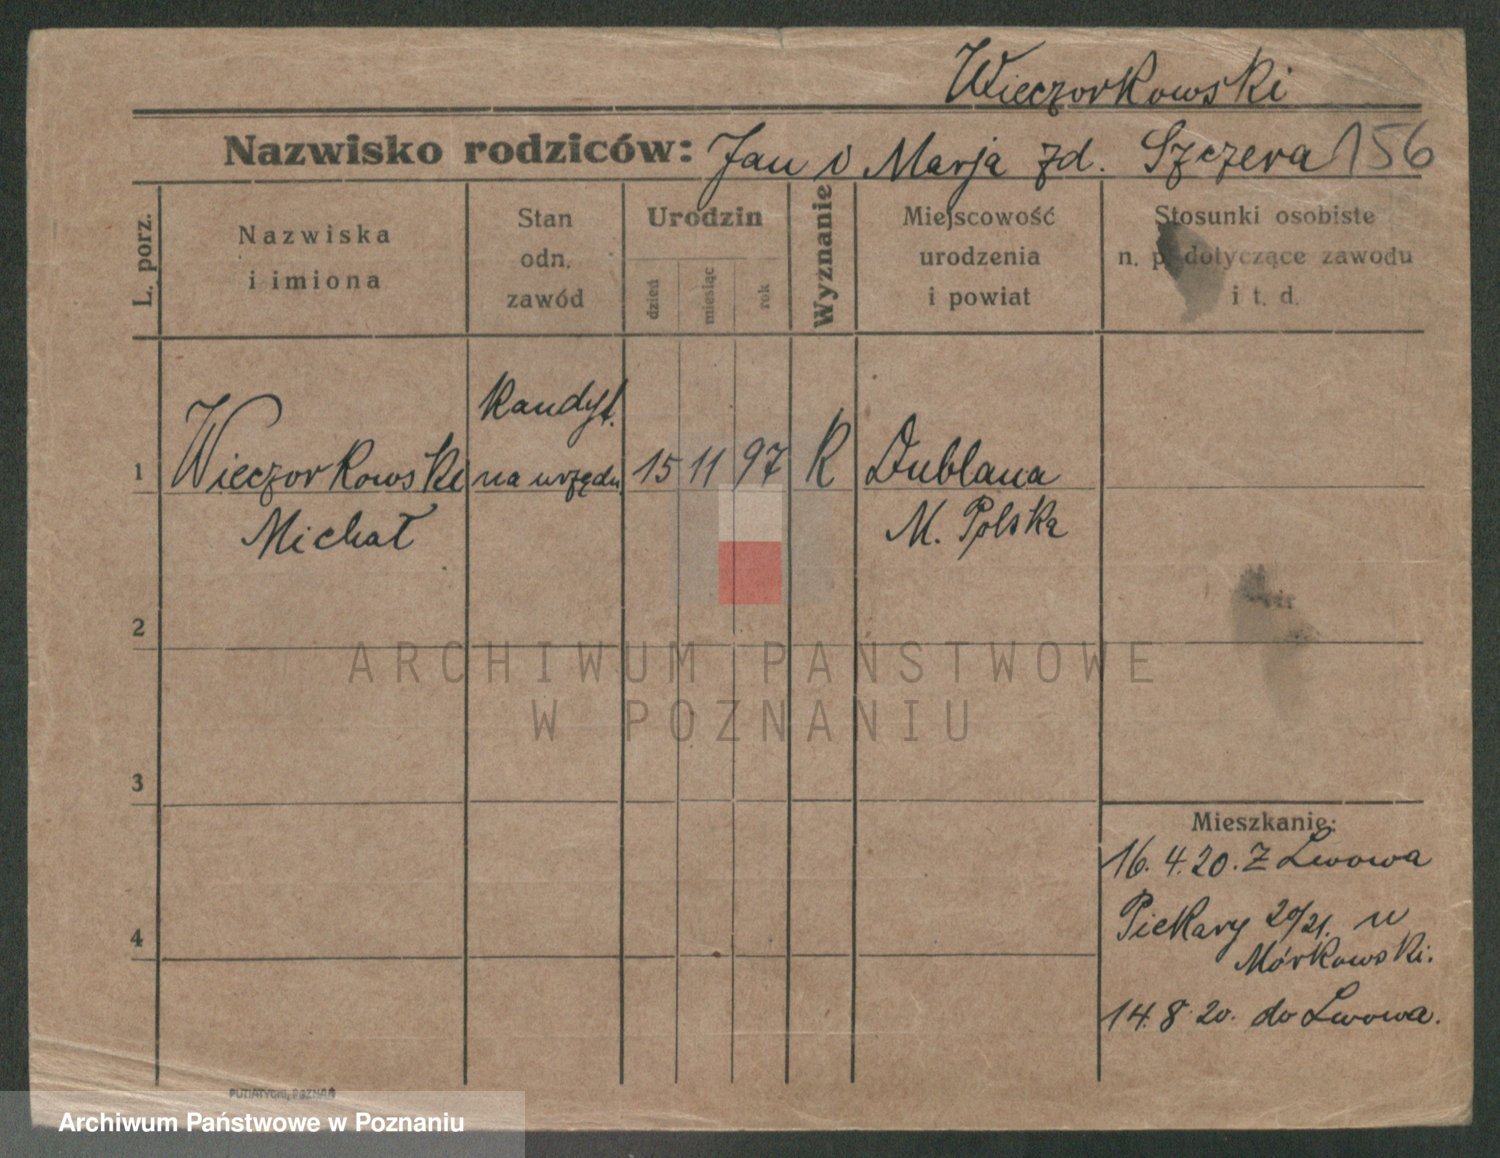 Wieczorkowski
Nazwisko rodziców: Jan i Marja zd. Szczera 156
L. porz.
Nazwiska
i imiona
Stan
odn.
zawód
Urodzin
dzień
miesiąc
rok
Wyznanie
Miejscowość
urodzenia
i powiat
Stosunki osobiste
n. p. dotyczące zawodu
i t. d.
1 Wieczorkowski
Michał
Kandyt.
na urzędn.
15 11 97 R Dublana
M. Polska
2
3
4
Mieszkanie:
16. 4. 20. z Lwowa
Piekary 20/21. u
Mórkowski.
14. 8. 20. do Lwowa.
PUTIATYCKI, POZNAŃ
ARCHIWUM PAŃSTWOWE
W POZNANIU
Archiwum Państwowe w Poznaniu